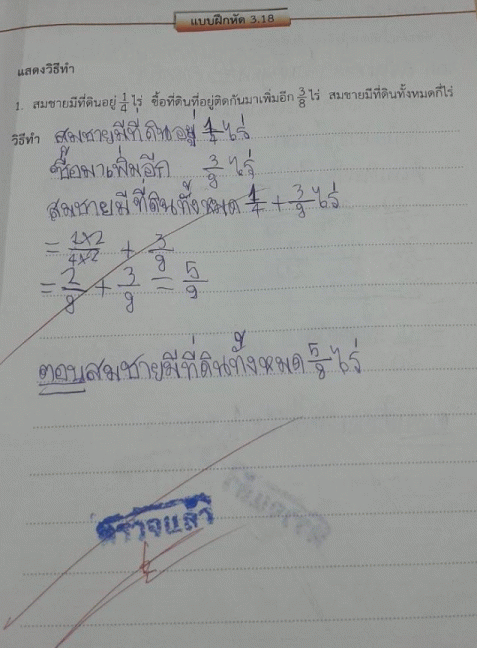 แบบฝึกหัด 3.18
แสดงวิธีทำ
1. สมชายมีที่ดินอยู่ 1/4 ไร่ ซื้อที่ดินที่อยู่ติดกันมาเพิ่มอีก 3/8 ไร่ สมชายมีที่ดินทั้งหมดกี่ไร่
วิธีทำ สมชายมีที่ดินอยู่ 1/4 ไร่
ซื้อมาเพิ่มอีก 3/8 ไร่
สมชายมีที่ดินทั้งหมด 1/4 + 3/8 ไร่
= 1×2/4×2 + 3/8
= 2/8 + 3/8 = 5/8
ตอบสมชายมีที่ดินทั้งหมด 5/8 ไร่
ตรวจแล้ว